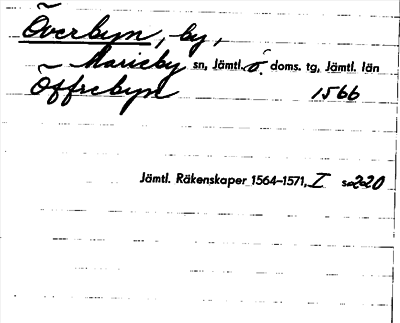 Överbyn, by,
Marieby sn, Jämtl. ö. doms. tg, Jämtl. län
Öffrebyn 1566
Jämtl. Räkenskaper 1564–1571, I s. 220